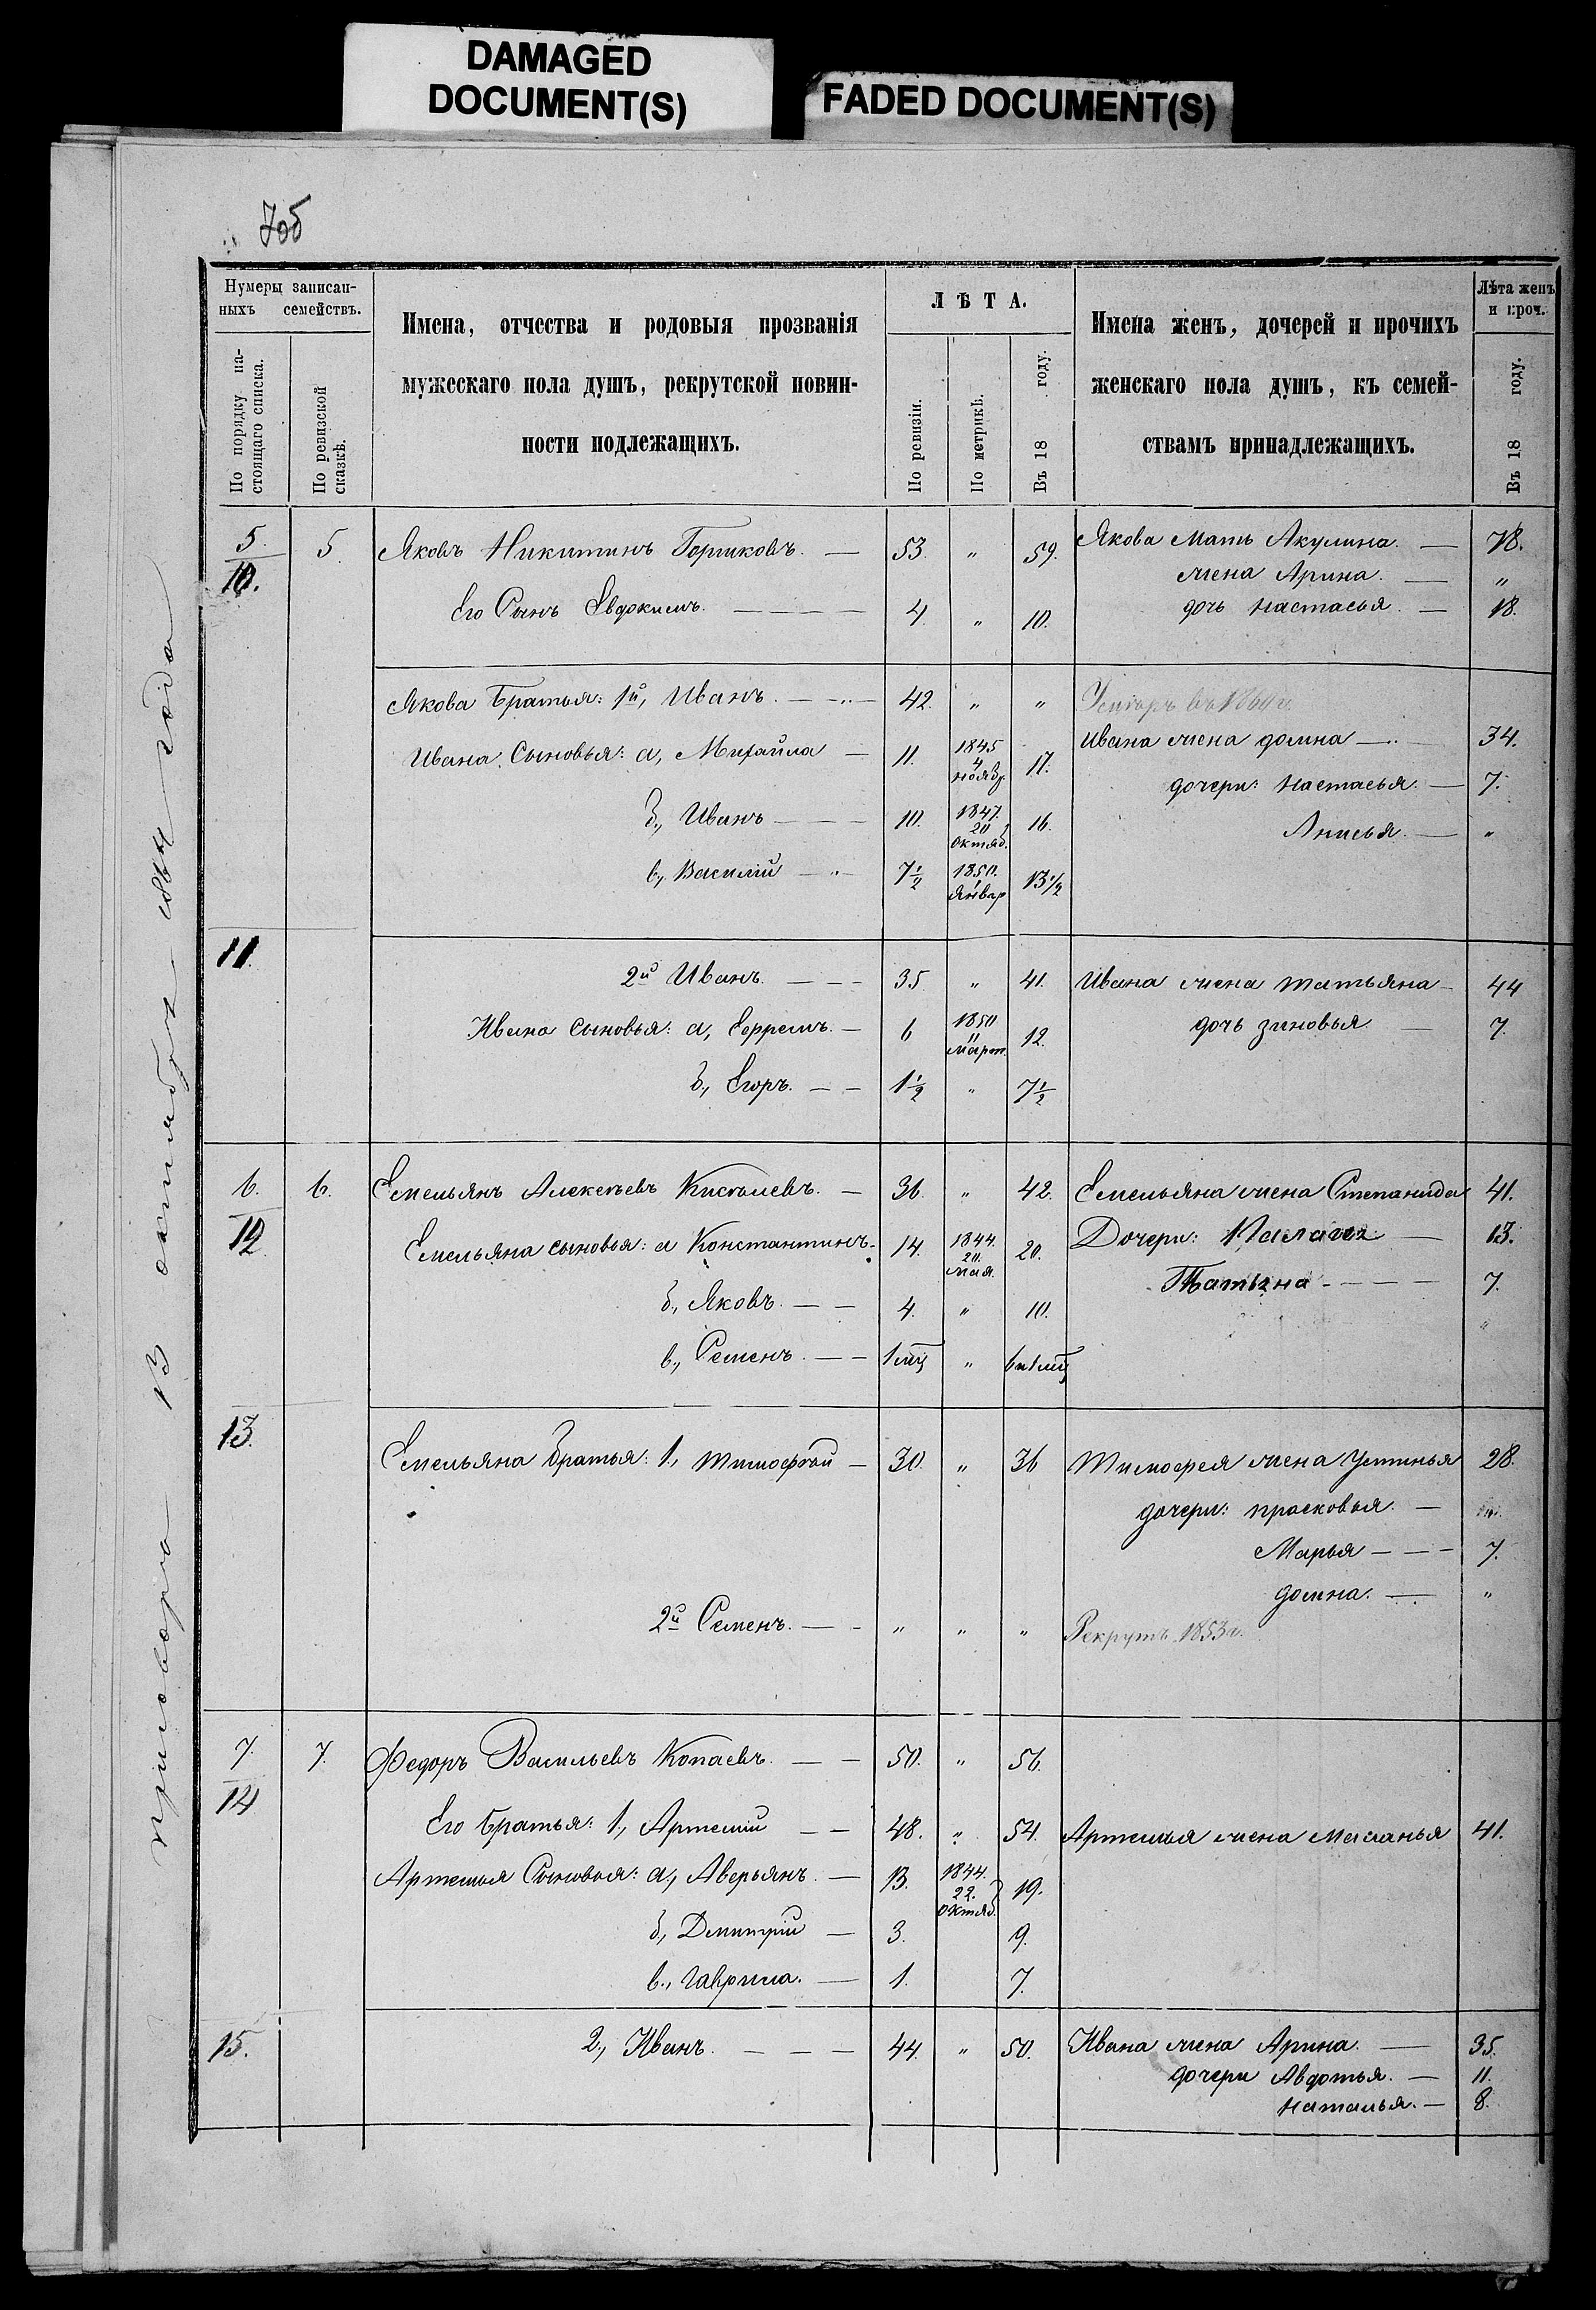 DAMAGED
DOCUMENT(S)
FADED DOCUMENT(S)
7об
Нумеры записан-
ныхъ семействъ.
По порядку на-
стоящаго списка.
По ревизской
сказкѣ.
Имена, отчества и родовыя прозванія
мужескаго пола душъ, рекрутской повин-
ности подлежащихъ.
ЛѢТА.
По ревизіи.
По метрикѣ.
Въ 18 году.
Имена женъ, дочерей и прочихъ
женскаго пола душъ, къ семей-
ствамъ принадлежащихъ.
Лѣта женъ
и проч.
Въ 18 году.
5. 5. Яковъ Никитинъ — 53. " 59. Якова мать Акулина. — 78.
10. жена Арина. — "
Его Сынъ Евдокимъ. — 4. " 10. дочь Настасья. — 18.
Якова Братья: 1й, Иванъ. — 42. " "
Ивана жена домна — 34.
Ивана Сыновья: а, Михайла — 11. 1845 4 нояб. 17. дочери: Настасья. — 7.
б., Иванъ — 10. 1847. 20 октяб. 16. Анисья. — "
в., Василій — 7½ 1850. Январ 13½
11.
2й Иванъ. — 35. " 41. Ивана жена татьяна — 44
Ивана сыновья: а, Ефремъ. — 6 1850 март. 12. дочь зиновья. — 7.
б., Егоръ. — 1½ " 7½
6. 6. Емельянъ Алексѣевъ — 36. " 42. Емельяна жена Степанида 41.
12 Емельяна сыновья: а Константинъ. 14. 1844. 20. мая. 20. Дочери: — 13.
Татьяна — 7.
б., Яковъ. — 4. " 10. "
в., Семенъ. — "
13. Емельяна братья: 1., тимофѣй — 30. " 36 тимофея жена Устинья 28.
дочери: прасковья. —
Марья — 7.
домна. — "
2й Семенъ. — " " " Рекрутъ 1853 г.
7. 7. Федоръ Васильевъ Копаевъ. — 50. " 56.
14
Его братья: 1., Артемій — 48. " 54. Артемья жена Маланья 41.
Артемья Сыновья: а., Аверьянъ. — 13. 1844. 22. октяб. 19.
б., Дмитрій — 3. 9.
в., Гаврила. — 1. 7.
15. 2., Иванъ. — 44. " 50. Ивана жена Арина. — 35.
дочери Авдотья. — 11.
Наталья. — 8.
приговора 13 октября года